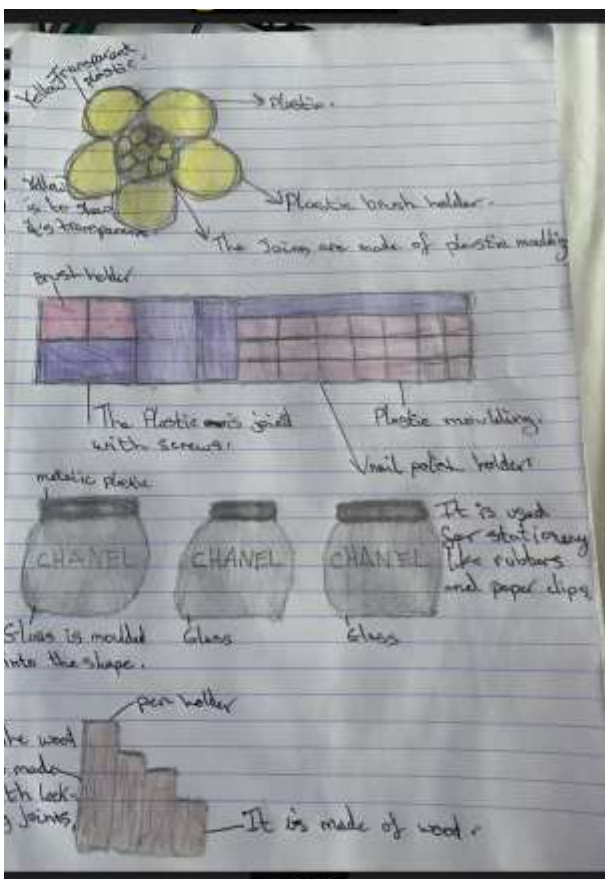 Yellow Transparent
plastic.
Plastic.
Yellow
is to show
it's transparent
Plastic brush holder.
The Joins are made of plastic moulding
Brush holder
The Plastic is joint
with screws.
Plastic moulding.
nail polish holder.
metalic plastic
CHANEL
CHANEL
CHANEL
It is used
for stationery
like rubbers
and paper clips
Glass is moulded
into the shape.
Glass
Glass
pen holder
he wood
made
th lock-
g joints,
It is made of wood.